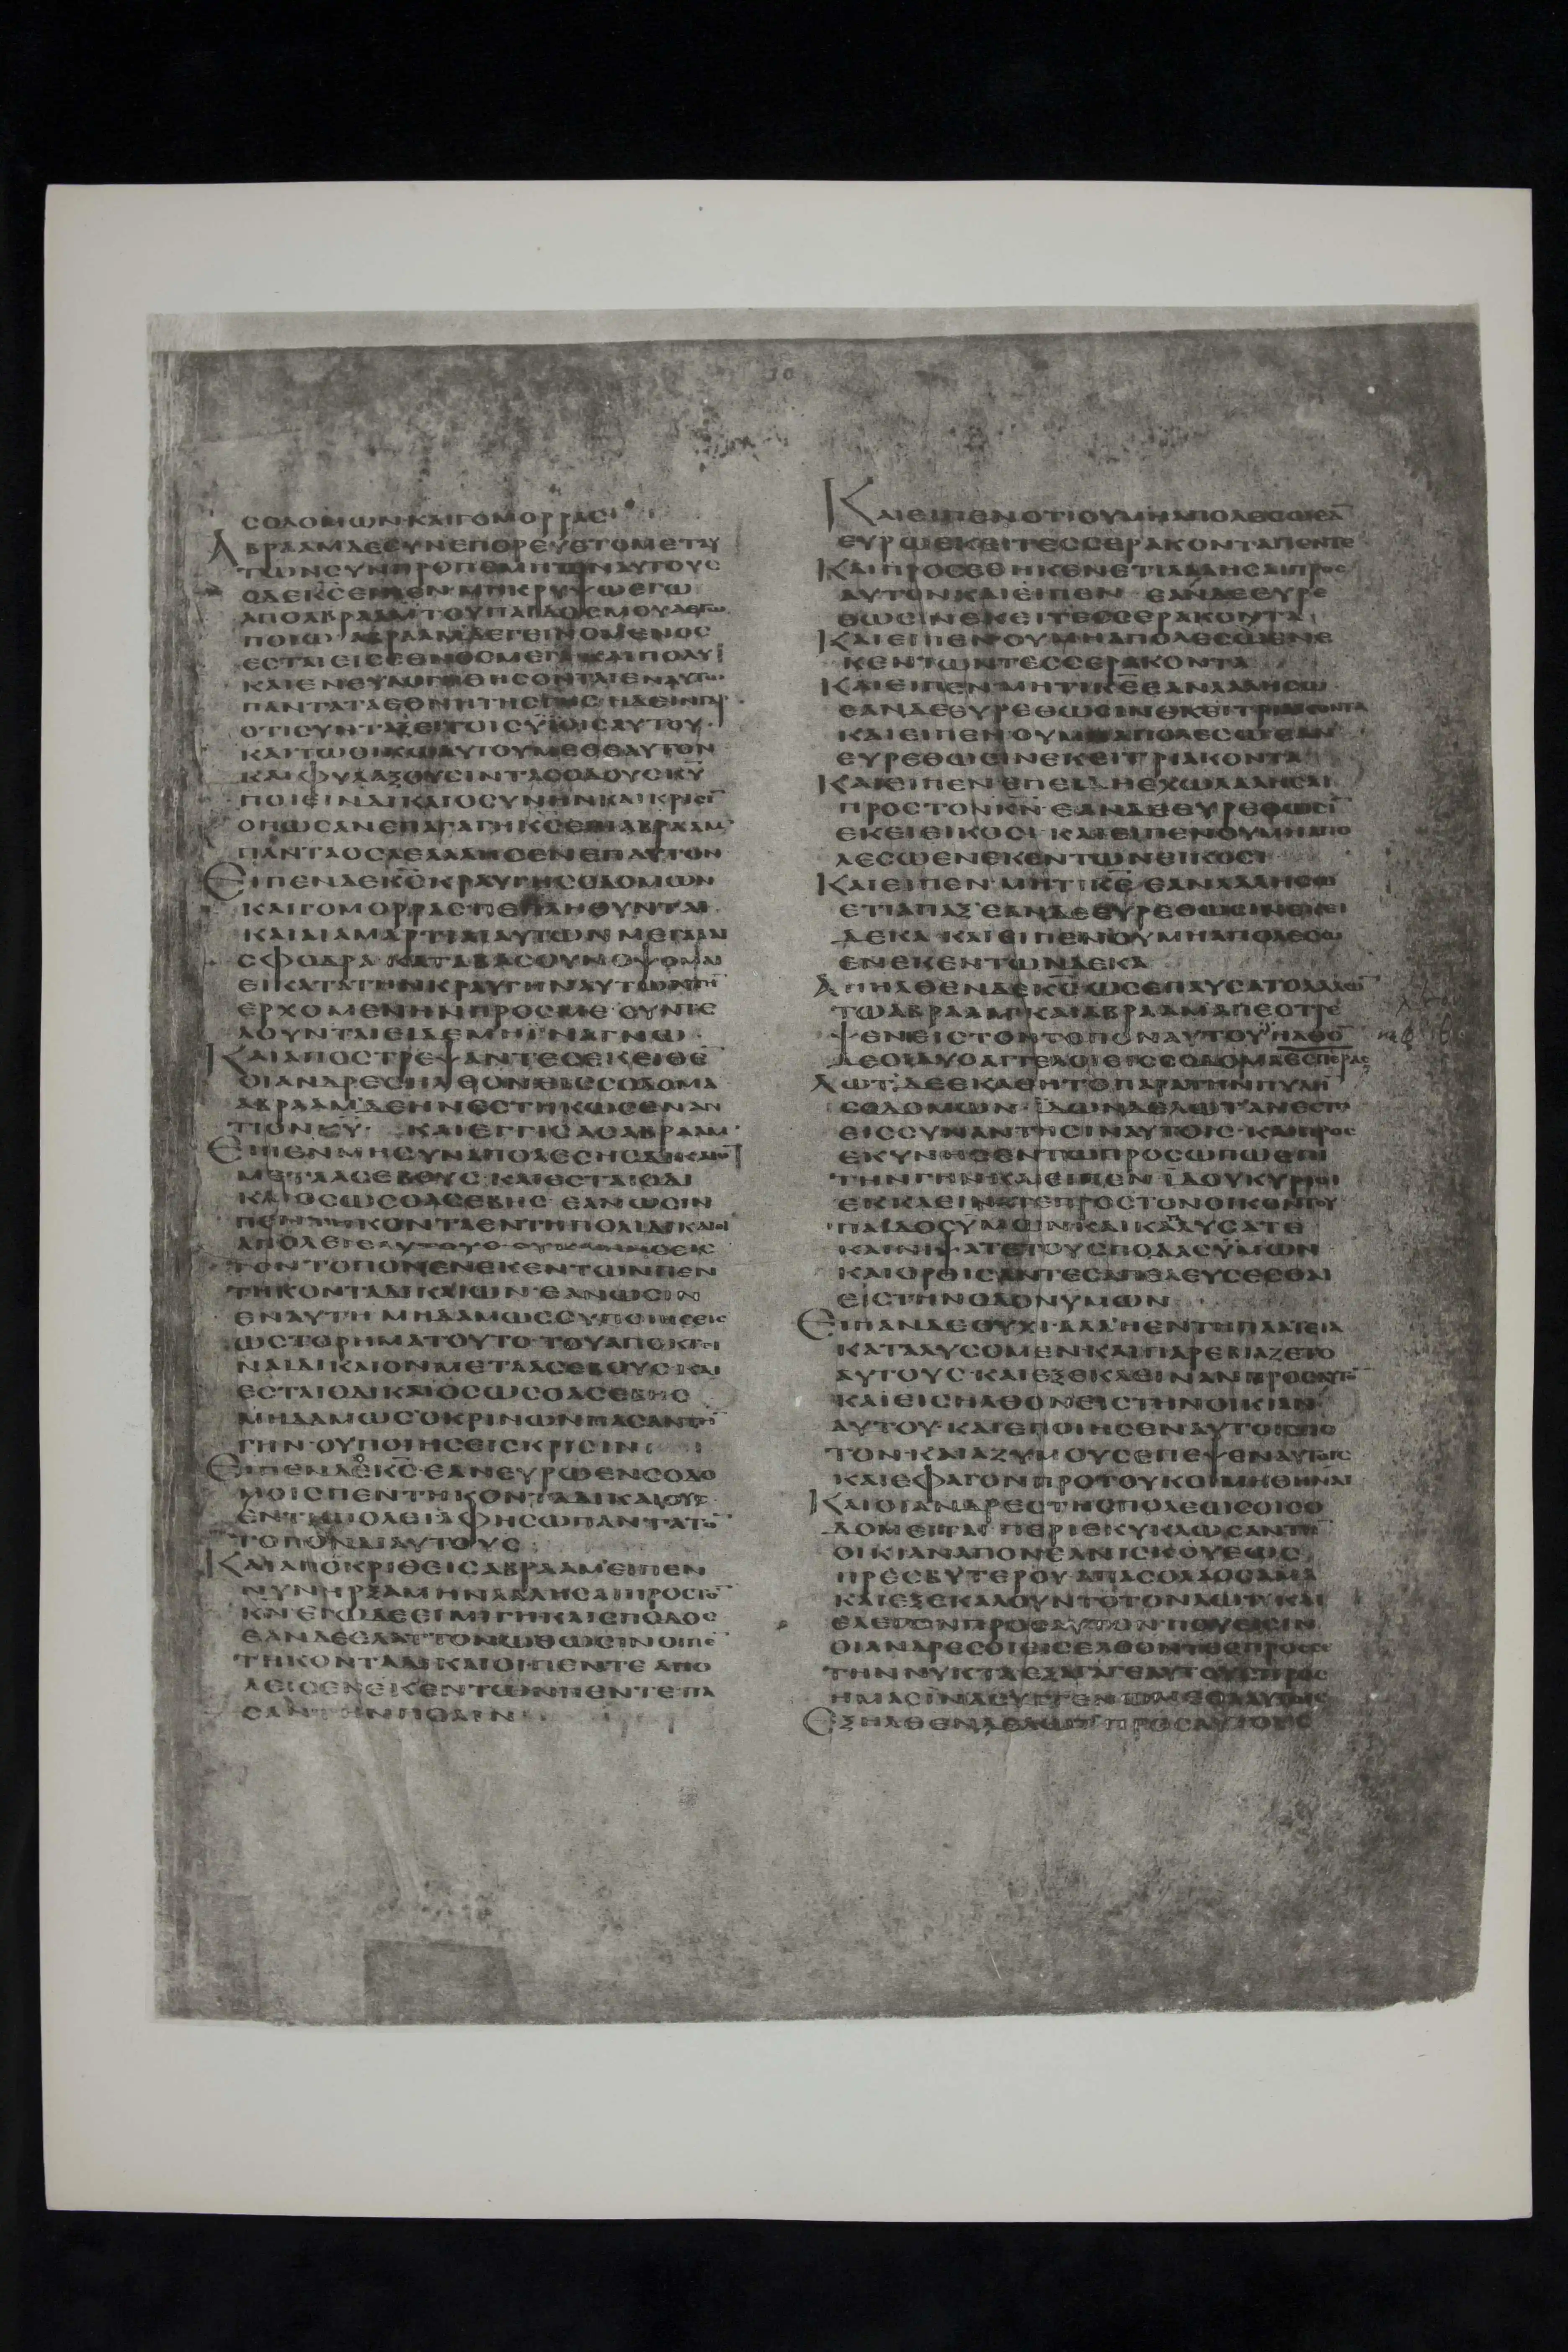 ϹΟΔΟΜΩΝ ΚΑΙ ΓΟΜΟΡΡΑϹ
ΑΒΡΑΑΜ ΔΕ ϹΥΝΕΠΟΡΕΥΕΤΟ ΜΕΤ ΑΥ
ΤΩΝ ϹΥΝΠΡΟΠΕΜΠΩΝ ΑΥΤΟΥϹ
Ο ΔΕ Κ̅Ϲ̅ ΕΙΠΕΝ ΜΗ ΚΡΥΨΩ ΕΓΩ
ΑΠΟ ΑΒΡΑΑΜ ΤΟΥ ΠΑΙΔΟϹ ΜΟΥ Α ΕΓΩ
ΠΟΙΩ ΑΒΡΑΑΜ ΔΕ ΓΕΙΝΟΜΕΝΟϹ
ΕϹΤΑΙ ΕΙϹ ΕΘΝΟϹ ΜΕΓΑ ΚΑΙ ΠΟΛΥ
ΚΑΙ ΕΝΕΥΛΟΓΗΘΗϹΟΝΤΑΙ ΕΝ ΑΥΤΩ
ΠΑΝΤΑ ΤΑ ΕΘΝΗ ΤΗϹ ΓΗϹ ΗΔΕΙΝ ΓΑΡ
ΟΤΙ ϹΥΝΤΑΞΕΙ ΤΟΙϹ ΥΙΟΙϹ ΑΥΤΟΥ
ΚΑΙ ΤΩ ΟΙΚΩ ΑΥΤΟΥ ΜΕΘ ΕΑΥΤΟΝ
ΚΑΙ ΦΥΛΑΞΟΥϹΙΝ ΤΑϹ ΟΔΟΥϹ Κ̅Υ̅
ΠΟΙΕΙΝ ΔΙΚΑΙΟϹΥΝΗΝ ΚΑΙ ΚΡΙϹΙ̅
ΟΠΩϹ ΑΝ ΕΠΑΓΑΓΗ Κ̅Ϲ̅ ΕΠΙ ΑΒΡΑΑΜ
ΠΑΝΤΑ ΟϹΑ ΕΛΑΛΗϹΕΝ ΕΠ ΑΥΤΟΝ
ΕΙΠΕΝ ΔΕ Κ̅Ϲ̅ ΚΡΑΥΓΗ ϹΟΔΟΜΩΝ
ΚΑΙ ΓΟΜΟΡΡΑϹ ΠΕΠΛΗΘΥΝΤΑΙ
ΚΑΙ ΑΙ ΑΜΑΡΤΙΑΙ ΑΥΤΩΝ ΜΕΓΑΛΑΙ
ϹΦΟΔΡΑ ΚΑΤΑΒΑϹ ΟΥΝ ΟΨΟΜΑΙ
ΕΙ ΚΑΤΑ ΤΗΝ ΚΡΑΥΓΗΝ ΑΥΤΩΝ ΤΗ̅
ΕΡΧΟΜΕΝΗΝ ΠΡΟϹ ΜΕ ϹΥΝΤΕ
ΛΟΥΝΤΑΙ ΕΙ ΔΕ ΜΗ ΙΝΑ ΓΝΩ
ΚΑΙ ΑΠΟϹΤΡΕΨΑΝΤΕϹ ΕΚΕΙΘΕ̅
ΟΙ ΑΝΔΡΕϹ ΗΛΘΟΝ ΕΙϹ ϹΟΔΟΜΑ
ΑΒΡΑΑΜ ΔΕ ΗΝ ΕϹΤΗΚΩϹ ΕΝΑΝ
ΤΙΟΝ Κ̅Υ̅ ΚΑΙ ΕΓΓΙϹΑϹ ΑΒΡΑΑΜ
ΕΙΠΕΝ ΜΗ ϹΥΝΑΠΟΛΕϹΗϹ ΔΙΚΑΙΟ̅
ΜΕΤΑ ΑϹΕΒΟΥϹ ΚΑΙ ΕϹΤΑΙ Ο ΔΙ
ΚΑΙΟϹ ΩϹ Ο ΑϹΕΒΗϹ ΕΑΝ ΩϹΙΝ
ΠΕΝΤΗΚΟΝΤΑ ΕΝ ΤΗ ΠΟΛΙ ΔΙΚΑΙΟΙ
ΑΠΟΛΕΙϹ ΑΥΤΟΥϹ ΟΥΚ ΑΝΗϹΕΙϹ
ΤΟΝ ΤΟΠΟΝ ΕΝΕΚΕΝ ΤΩΝ ΠΕΝ
ΤΗΚΟΝΤΑ ΔΙΚΑΙΩΝ ΕΑΝ ΩϹΙΝ
ΕΝ ΑΥΤΗ ΜΗΔΑΜΩϹ ϹΥ ΠΟΙΗϹΕΙϹ
ΩϹ ΤΟ ΡΗΜΑ ΤΟΥΤΟ ΤΟΥ ΑΠΟΚΤΙ
ΝΑΙ ΔΙΚΑΙΟΝ ΜΕΤΑ ΑϹΕΒΟΥϹ ΚΑΙ
ΕϹΤΑΙ Ο ΔΙΚΑΙΟϹ ΩϹ Ο ΑϹΕΒΗϹ
ΜΗΔΑΜΩϹ Ο ΚΡΙΝΩΝ ΠΑϹΑΝ ΤΗ̅
ΓΗΝ ΟΥ ΠΟΙΗϹΕΙϹ ΚΡΙϹΙΝ
ΕΙΠΕΝ ΔΕ Κ̅Ϲ̅ ΕΑΝ ΕΥΡΩ ΕΝ ϹΟΔΟ
ΜΟΙϹ ΠΕΝΤΗΚΟΝΤΑ ΔΙΚΑΙΟΥϹ
ΕΝ ΤΗ ΠΟΛΕΙ ΑΦΗϹΩ ΠΑΝΤΑ ΤΟ̅
ΤΟΠΟΝ ΔΙ ΑΥΤΟΥϹ
ΚΑΙ ΑΠΟΚΡΙΘΕΙϹ ΑΒΡΑΑΜ ΕΙΠΕΝ
ΝΥΝ ΗΡΞΑΜΗΝ ΛΑΛΗϹΑΙ ΠΡΟϹ ΤΟ̅
Κ̅Ν̅ ΕΓΩ ΔΕ ΕΙΜΙ ΓΗ ΚΑΙ ϹΠΟΔΟϹ
ΕΑΝ ΔΕ ΕΛΑΤΤΟΝΩΘΩϹΙΝ ΟΙ ΠΕ̅
ΤΗΚΟΝΤΑ ΔΙΚΑΙΟΙ ΠΕΝΤΕ ΑΠΟ
ΛΕΙϹ ΕΝΕΚΕΝ ΤΩΝ ΠΕΝΤΕ ΠΑ
ϹΑΝ ΤΗΝ ΠΟΛΙΝ
ΚΑΙ ΕΙΠΕΝ ΟΤΙ ΟΥ ΜΗ ΑΠΟΛΕϹΩ ΕΑ̅
ΕΥΡΩ ΕΚΕΙ ΤΕϹϹΕΡΑΚΟΝΤΑ ΠΕΝΤΕ
ΚΑΙ ΠΡΟϹΕΘΗΚΕΝ ΕΤΙ ΛΑΛΗϹΑΙ ΠΡΟϹ
ΑΥΤΟΝ ΚΑΙ ΕΙΠΕΝ ΕΑΝ ΔΕ ΕΥΡΕ
ΘΩϹΙΝ ΕΚΕΙ ΤΕϹϹΕΡΑΚΟΝΤΑ
ΚΑΙ ΕΙΠΕΝ ΟΥ ΜΗ ΑΠΟΛΕϹΩ ΕΝΕ
ΚΕΝ ΤΩΝ ΤΕϹϹΕΡΑΚΟΝΤΑ
ΚΑΙ ΕΙΠΕΝ ΜΗ ΤΙ Κ̅Ε̅ ΕΑΝ ΛΑΛΗϹΩ
ΕΑΝ ΔΕ ΕΥΡΕΘΩϹΙΝ ΕΚΕΙ ΤΡΙΑΚΟΝΤΑ
ΚΑΙ ΕΙΠΕΝ ΟΥ ΜΗ ΑΠΟΛΕϹΩ ΕΑΝ
ΕΥΡΕΘΩϹΙΝ ΕΚΕΙ ΤΡΙΑΚΟΝΤΑ
ΚΑΙ ΕΙΠΕΝ ΕΠΕΙΔΗ ΕΧΩ ΛΑΛΗϹΑΙ
ΠΡΟϹ ΤΟΝ Κ̅Ν̅ ΕΑΝ ΔΕ ΕΥΡΕΘΩϹΙ̅
ΕΚΕΙ ΕΙΚΟϹΙ ΚΑΙ ΕΙΠΕΝ ΟΥ ΜΗ ΑΠΟ
ΛΕϹΩ ΕΝΕΚΕΝ ΤΩΝ ΕΙΚΟϹΙ
ΚΑΙ ΕΙΠΕΝ ΜΗ ΤΙ Κ̅Ε̅ ΕΑΝ ΛΑΛΗϹΩ
ΕΤΙ ΑΠΑΞ ΕΑΝ ΔΕ ΕΥΡΕΘΩϹΙΝ ΕΚΕΙ
ΔΕΚΑ ΚΑΙ ΕΙΠΕΝ ΟΥ ΜΗ ΑΠΟΛΕϹΩ
ΕΝΕΚΕΝ ΤΩΝ ΔΕΚΑ
ΑΠΗΛΘΕΝ ΔΕ Κ̅Ϲ̅ ΩϹ ΕΠΑΥϹΑΤΟ ΛΑΛΩ̅
ΤΩ ΑΒΡΑΑΜ ΚΑΙ ΑΒΡΑΑΜ ΑΠΕϹΤΡΕ
ΨΕΝ ΕΙϹ ΤΟΝ ΤΟΠΟΝ ΑΥΤΟΥ ΗΛΘΟ̅
ΔΕ ΟΙ ΔΥΟ ΑΓΓΕΛΟΙ ΕΙϹ ϹΟΔΟΜΑ ΕϹΠΕΡΑϹ
ΛΩΤ ΔΕ ΕΚΑΘΗΤΟ ΠΑΡΑ ΤΗΝ ΠΥΛΗ̅
ϹΟΔΟΜΩΝ ΙΔΩΝ ΔΕ ΛΩΤ ΑΝΕϹΤΗ
ΕΙϹ ϹΥΝΑΝΤΗϹΙΝ ΑΥΤΟΙϹ ΚΑΙ ΠΡΟϹ
ΕΚΥΝΗϹΕΝ ΤΩ ΠΡΟϹΩΠΩ ΕΠΙ
ΤΗΝ ΓΗΝ ΚΑΙ ΕΙΠΕΝ ΙΔΟΥ ΚΥΡΙΟΙ
ΕΚΚΛΕΙΝΑΤΕ ΠΡΟϹ ΤΟΝ ΟΙΚΟΝ ΤΟΥ
ΠΑΙΔΟϹ ΥΜΩΝ ΚΑΙ ΚΑΤΑΛΥϹΑΤΕ
ΚΑΙ ΝΙΨΑΤΕ ΤΟΥϹ ΠΟΔΑϹ ΥΜΩΝ
ΚΑΙ ΟΡΘΙϹΑΝΤΕϹ ΑΠΕΛΕΥϹΕϹΘΑΙ
ΕΙϹ ΤΗΝ ΟΔΟΝ ΥΜΩΝ
ΕΙΠΑΝ ΔΕ ΟΥΧΙ ΑΛΛ Η ΕΝ ΤΗ ΠΛΑΤΕΙΑ
ΚΑΤΑΛΥϹΟΜΕΝ ΚΑΙ ΠΑΡΕΒΙΑΖΕΤΟ
ΑΥΤΟΥϹ ΚΑΙ ΕΞΕΚΛΕΙΝΑΝ ΠΡΟϹ ΑΥΤΟ̅
ΚΑΙ ΕΙϹΗΛΘΟΝ ΕΙϹ ΤΗΝ ΟΙΚΙΑΝ
ΑΥΤΟΥ ΚΑΙ ΕΠΟΙΗϹΕΝ ΑΥΤΟΙϹ ΠΟ
ΤΟΝ ΚΑΙ ΑΖΥΜΟΥϹ ΕΠΕΨΕΝ ΑΥΤΟΙϹ
ΚΑΙ ΕΦΑΓΟΝ ΠΡΟ ΤΟΥ ΚΟΙΜΗΘΗΝΑΙ
ΚΑΙ ΟΙ ΑΝΔΡΕϹ ΤΗϹ ΠΟΛΕΩϹ ΟΙ ϹΟ
ΔΟΜΕΙΤΑΙ ΠΕΡΙΕΚΥΚΛΩϹΑΝ ΤΗ̅
ΟΙΚΙΑΝ ΑΠΟ ΝΕΑΝΙϹΚΟΥ ΕΩϹ
ΠΡΕϹΒΥΤΕΡΟΥ ΑΠΑϹ Ο ΛΑΟϹ ΑΜΑ
ΚΑΙ ΕΞΕΚΑΛΟΥΝΤΟ ΤΟΝ ΛΩΤ ΚΑΙ
ΕΛΕΓΟΝ ΠΡΟϹ ΑΥΤΟΝ ΠΟΥ ΕΙϹΙΝ
ΟΙ ΑΝΔΡΕϹ ΟΙ ΕΙϹΕΛΘΟΝΤΕϹ ΠΡΟϹ ϹΕ
ΤΗΝ ΝΥΚΤΑ ΕΞΑΓΑΓΕ ΑΥΤΟΥϹ ΠΡΟϹ
ΗΜΑϹ ΙΝΑ ϹΥΓΓΕΝΩΜΕΘΑ ΑΥΤΟΙϹ
ΕΞΗΛΘΕΝ ΔΕ ΛΩΤ ΠΡΟϹ ΑΥΤΟΥϹ